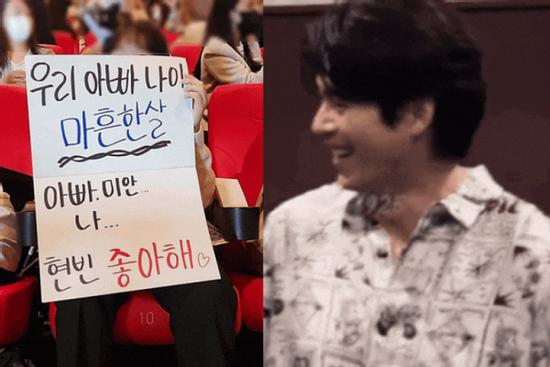 우리 아빠 나이
마흔한살
아빠.미안...
나...
현빈 좋아해♡
10
1925